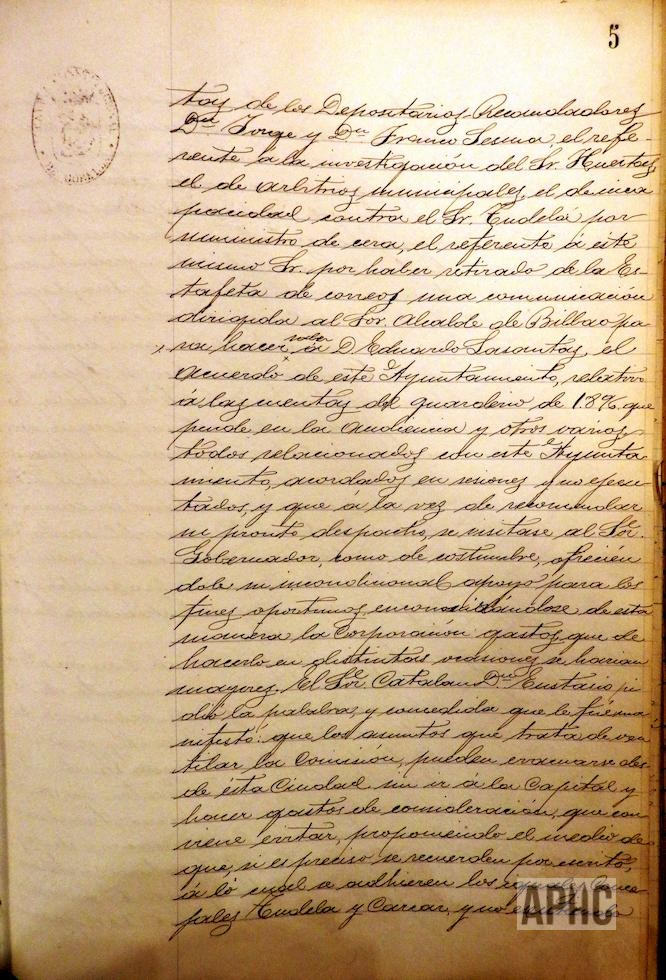 5
tas de los Depositarios Recaudadores
Dn Jorge y Dn Franco Lesma, el refe-
rente á la investigación del Sr. Huertas,
el de arbitrios municipales, el de inca
pacidad contra el Sr. Tudela por
suministro de cera, el referente á este
mismo Sr. por haber retirado de la Es-
tafeta de correos una comunicación
dirigida al Sor. Alcalde de Bilbao pa-
ra hacer saber á D. Eduardo Lasantas, el
acuerdo de este Ayuntamiento, relativo
á las cuentas del guarderio de 1896, que
pende en la Audiencia y otros varios
todos relacionados con este Ayunta
miento, acordados en sesiones y no ejecu-
tados, y que á la vez de recomendar
su pronto despacho, se visitase al Sor.
Gobernador, como de costumbre, ofrecién
dole su incondicional apoyo para los
fines oportunos de esta
manera la Corporación gastos que de
hacerlo en distintas ocasiones se harian
mayores. El Sor. Catalan Dn Eustasio pi
dió la palabra, y concedida que le fué ma
nifestó: que los asuntos que trata de ven
tilar la Comisión, pueden evacuarse des
de ésta Ciudad sin ir á la Capital y
hacer gastos de consideración, que con
viene evitar, proponiendo el medio de
que, si es preciso se recuerden por escrito,
á lo cual se adhieren los Conce
jales Tudela y Carcar, y no
APHC